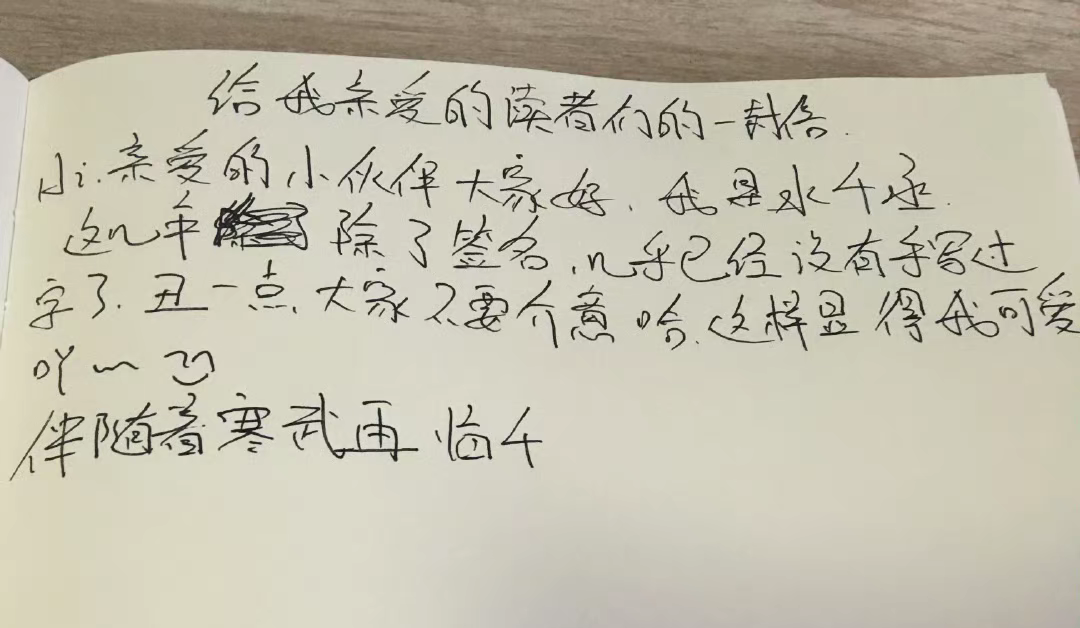 给我亲爱的读者们的一封信.
Hi.亲爱的小伙伴大家好.我是水千丞.
这几年 除了签名,几乎已经没有手写过
字了.丑一点,大家不要介意哈.这样显得我可爱
吖~
伴随着寒武再临